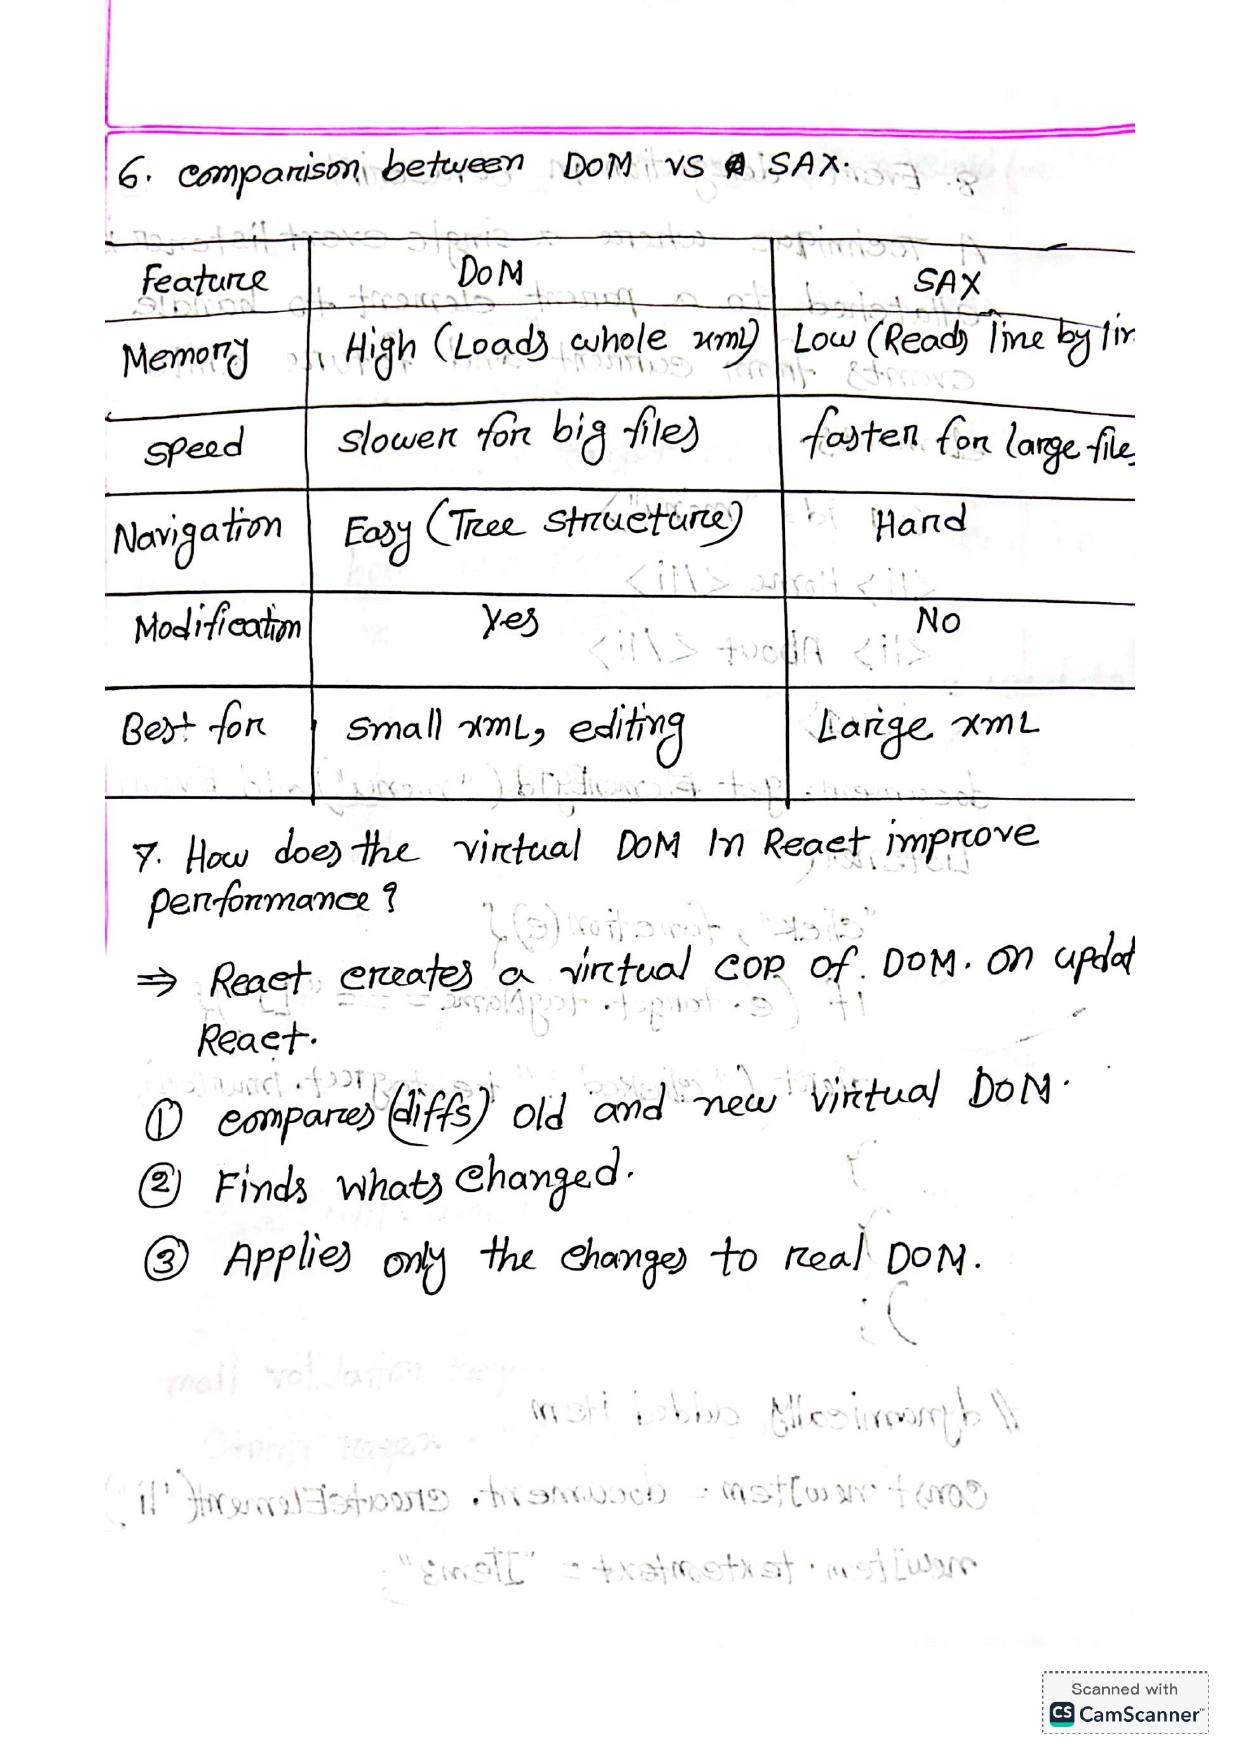 6. comparison between DOM vs SAX.
Feature DOM SAX
Memory High (Loads whole xml) Low (Reads line by lin
speed slower for big files faster for large file
Navigation Easy (Tree structure) Hard
Modification Yes No
Best for small xmL, editing Large xmL
7. How does the virtual DOM In React improve
performance?
⇒ React creates a virtual COP of DOM. on updat
React.
① compares (diffs) old and new virtual DOM.
② Finds whats changed.
③ Applies only the changes to real DOM.
Scanned with
CS CamScanner